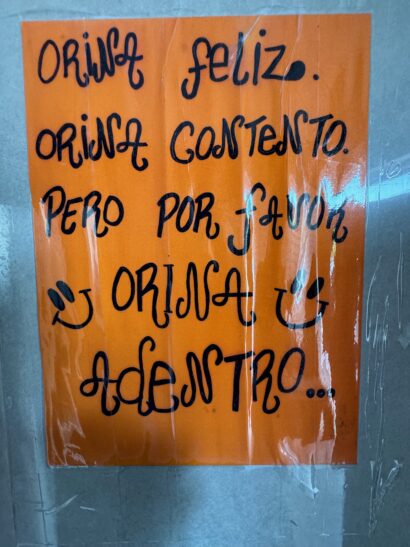 ORINA feliz.
ORINA CONTENTO.
PERO POR fAVOR
ORINA
AdENTRO...